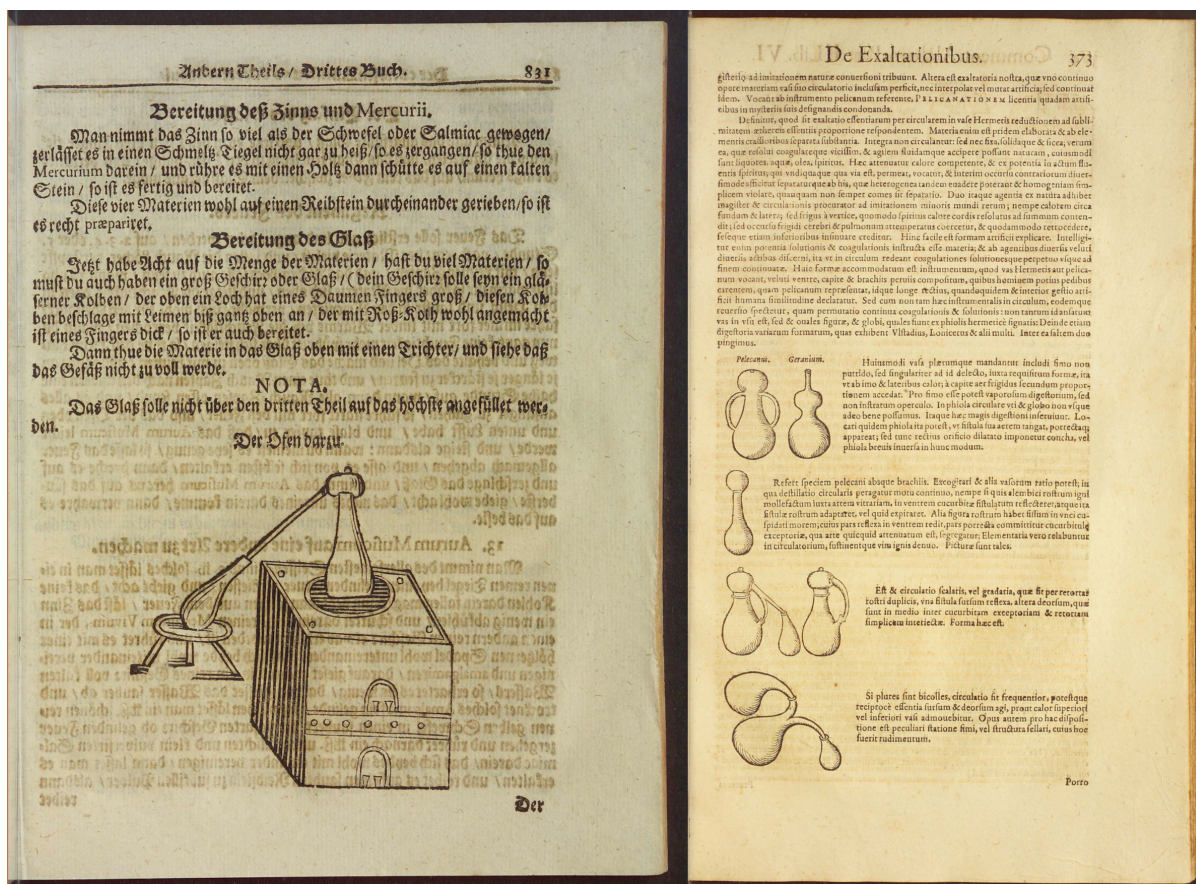 Andern Theils / Drittes Buch. 831
Bereitung deß Zinns und Mercurii.
Man nimmt das Zinn so viel als der Schwefel oder Salmiac gewogen/
zerlässet es in einen Schmeltz-Tiegel nicht gar zu heiß/ so es zergangen/ so thue den
Mercurium darein / und rühre es mit einen Holtz dann schütte es auf einen kalten
Stein / so ist es fertig und bereitet.
Diese vier Materien wohl auf einen Reibstein durcheinander gerieben/ so ist
es recht præpariret.
Bereitung des Glaß
Jetzt habe Acht auf die Menge der Materien / hast du viel Materien / so
must du auch haben ein groß Geschirz oder Glaß / (dein Geschirz solle seyn ein glä-
serner Kolben / der oben ein Loch hat eines Daumen Fingers groß / diesen Kol-
ben beschlage mit Leimen biß gantz oben an / der mit Roß-Koth wohl angemacht
ist eines Fingers dick / so ist er auch bereitet.
Dann thue die Materie in das Glaß oben mit einen Trichter/ und siehe daß
das Gefäß nicht zu voll werde.
NOTA.
Das Glaß solle nicht über den dritten Theil auf das höchste angefüllet wer-
den.
Der Ofen darzu
Der
De Exaltationibus. 373
gisterio ad imitationem naturæ conuersioni tribuunt. Altera est exaltatoria nostra, quæ vno continuo
opere materiam vasi suo circulatorio inclusam perficit, nec interpolat vel mutat artificia; sed continuat
idem. Vocatur ab instrumento pelicanum referente, PELICANATIONEM licentia quadam artifi-
cibus in mysteriis suis designandis condonanda.
Definitur, quod sit exaltatio essentiarum per circularem in vase Hermetis reductionem ad subli-
mitatem æthereis essentiis proportione respondentem. Materia enim est pridem elaborata & ab ele-
mentis crassioribus separata substantia. Integra non circulantur: sed nec fixa, solidaque & sicca; verum
ea, quæ resolui coagulareque vicissim, & agilem fluidamque accipere possunt naturam, cuiusmodi
sunt liquores, aquæ, olea, spiritus. Hæc attenuatur calore competente, & ex potentia in actum flu-
entis spiritus; qui vndiquaque qua via est, permeat, vocatur, & interim occursu contrariorum diuer-
simode afficitur separaturque ab his, quæ heterogenea tandem euadere poterant & homogeniam sim-
plicem violare, quanquam non semper comes sit separatio. Duo itaque agentia ex natura adhibet
magister & circulationis procurator ad imitationem minoris mundi rerum; nempe calorem circa
fundum & latera; sed frigus à vertice, quomodo spiritus calore cordis resolutus ad summum conten-
dit; sed occursu frigidi cerebri & pulmonum attemperatus coercetur, & quodammodo retrocedere,
seseque etiam inferioribus insinuare creditur. Hinc facile est formam artificii explicate. Intelligi-
tur enim potentia solutionis & coagulationis instructa esse materia; & ab agentibus diuersis veluti
diuersis actibus discerni, ita vt in circulum redeant coagulationes solutionesque perpetuo vsque ad
finem continuatæ. Huic formæ accommodatum est instrumentum, quod vas Hermetis aut pelica-
num vocant, veluti ventre, capite & brachiis peruiis compositum, quibus hominem potius pedibus
carentem, quam pelicanum repræsentat, idque longe rectius, quandoquidem & interior gestio arti-
ficii humana similitudine declaratur. Sed cum non tam hæc instrumentalis in circulum, eodemque
recursio spectetur, quam permutatio continua coagulationis & solutionis: non tantum id ansatum
vas in vsu est, sed & ouales figuræ, & globi, quales fiunt ex phiolis hermeticè signatis: Deinde etiam
digestoria variarum formarum, quas exhibent Vlstadius, Lonicerus & alii multi. Inter ea saltem duo
pingimus.
Pelecanus. Geranium.
Huiusmodi vasa plærumque mandantur includi fimo non
putrido, sed singulariter ad id delecto, iuxta requisitum formæ, ita
vt ab imo & lateribus calor; à capite aer frigidus secundum propor-
tionem accedat. Pro fimo esse potest vaporosum digestorium, sed
non instratum operculo. In phiola circulare vti & globo non vsque
adeo bene possumus. Itaque hæc magis digestioni inseruiunt. Lo-
cari quidem phiola ita potest, vt fistula sua aerem tangat, porrectaq;
appareat; sed tunc rectius orificio dilatato imponetur concha, vel
phiola breuis inuersa in hunc modum.
Refert speciem pelecani absque brachiis. Excogitari & alia vasorum ratio potest; in
qua destillatio circularis peragatur motu continuo, nempe si quis alembici rostrum igni
mollefactum iuxta artem vitrariam, in ventrem cucurbitæ fistulatum reflecteret, atque ita
fistulæ rostrum adaptaret, vel quid expiraret. Alia figura rostrum habet fissum in vnci cu-
spidati morem, cuius pars reflexa in ventrem redit, pars porrecta committitur cucurbitulę
exceptoriæ, qua arte quicquid attenuatum est, segregatur; Elementaria vero relabuntur
in circulatorium, sustinentque vim ignis denuo. Picturæ sunt tales.
Est & circulatio scalaris, vel gradaria, quæ fit per retortas
rostri duplicis, vna fistula sursum reflexa, altera deorsum, quæ
sunt in medio inter cucurbitam exceptoriam & retortam
simplicem interiectæ. Forma hæc est.
Si plures sint bicolles, circulatio fit frequentior, potestque
reciprocè essentia sursum & deorsum agi, prout calor superiori
vel inferiori vasi admouebitur. Opus autem pro hac disposi-
tione est peculiari statione fimi, vel structura fellari, cuius hoc
fuerit rudimentum.
Porro